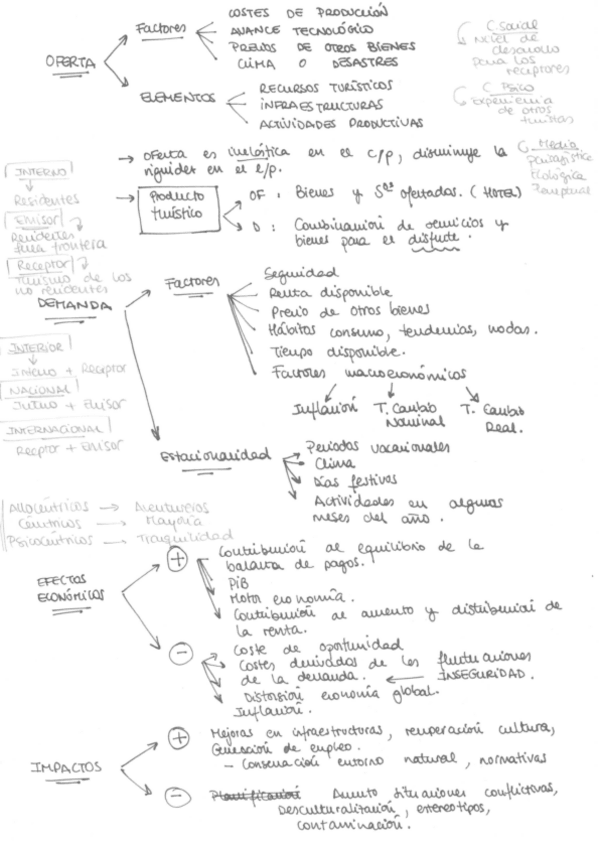 OFERTA
Factores
COSTES DE PRODUCCIÓN
AVANCE TECNOLÓGICO
PRECIOS DE OTROS BIENES
CLIMA O DESASTRES
ELEMENTOS
RECURSOS TURÍSTICOS
INFRAESTRUCTURAS
ACTIVIDADES PRODUCTIVAS
C. Social
Nivel de
desarrollo
para los
receptores
C. PSICO
Experiencia
de otros
turistas
→ Oferta es inelástica en el c/p, disminuye la
rigidez en el l/p.
C. Media
paisajística
Ecológica
Temporal
→ Producto
turístico
OF: Bienes y Sºs ofertados. (HOTEL)
D: Combinación de servicios y
bienes para el disfrute.
INTERNO
Residentes
Emisor
Residentes
fuera frontera
Receptor
Turismo de los
no residentes
DEMANDA
Factores
Seguridad
Renta disponible
Precio de otros bienes
Hábitos consumo, tendencias, modas.
Tiempo disponible.
Factores macroeconómicos
Inflación
T. Cambio
Nominal
T. Cambio
Real.
INTERIOR
Interno + Receptor
NACIONAL
Interno + Emisor
INTERNACIONAL
Receptor + Emisor
Estacionalidad
Periodos vacacionales
Clima
Días festivos
Actividades en algunos
meses del año.
Alocéntricos → Aventureros
Céntricos → Mayoría
Psicocéntricos → Tranquilidad
EFECTOS
ECONÓMICOS
+
Contribución al equilibrio de la
balanza de pagos.
PiB
Motor economía.
Contribución al aumento y distribución de
la renta.
-
Coste de oportunidad
Costes derivados de las fluctuaciones
de la demanda. ← INSEGURIDAD.
Distorsión economía global.
Inflación.
IMPACTOS
+
Mejoras en infraestructuras, recuperación cultura,
Generación de empleo.
- Conservación entorno natural, normativas
-
Planificación Aumento situaciones conflictivas,
Desculturalización, estereotipos,
contaminación.